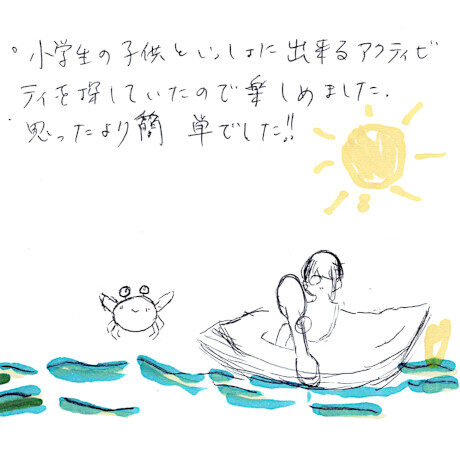 。小学生の子供といっしょに出来るアクティビ
ティを探していたので楽しめました.
・思ったより簡単でした!!